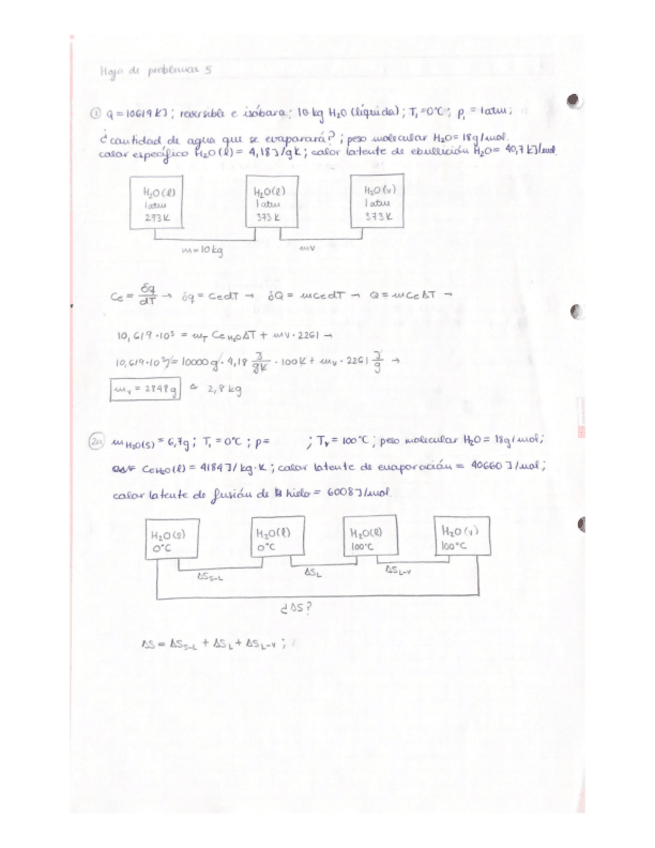 Hoja de problemas 5
① q = 10619 KJ ; reversible e isóbara ; 10 kg H₂O (líquida) ; T₁ = 0°C ; p₁ = 1atm ;
¿cantidad de agua que se evaporará? ; peso molecular H₂O = 18g/mol.
calor específico H₂O(l) = 4,18 J/gK ; calor latente de ebullición H₂O = 40,7 KJ/mol
H₂O(l) H₂O(l) H₂O(v)
1 atm 1 atm 1 atm
273K 373K 373K
m = 10 kg mv
Ce = δq/dT → δq = CedT → δQ = mCedT → Q = mCeΔT →
10,619·10⁵ = m_T Ce_H₂O ΔT + mv · 2261 →
10,619·10⁵J = 10000g · 4,18 J/gK · 100K + mv · 2261 J/g →
mv = 2848g ≈ 2,8 kg
②a m H₂O(s) = 6,7g ; T₁ = 0°C ; p = ; Tv = 100°C ; peso molecular H₂O = 18g/mol ;
CeH₂O(l) = 4184J/kg·K ; calor latente de evaporación = 40660 J/mol ;
calor latente de fusión de hielo = 6008J/mol
H₂O(s) H₂O(l) H₂O(l) H₂O(v)
0°C 0°C 100°C 100°C
ΔS_S-L ΔS_L ΔS_L-V
¿ΔS?
ΔS = ΔS_S-L + ΔS_L + ΔS_L-V ;